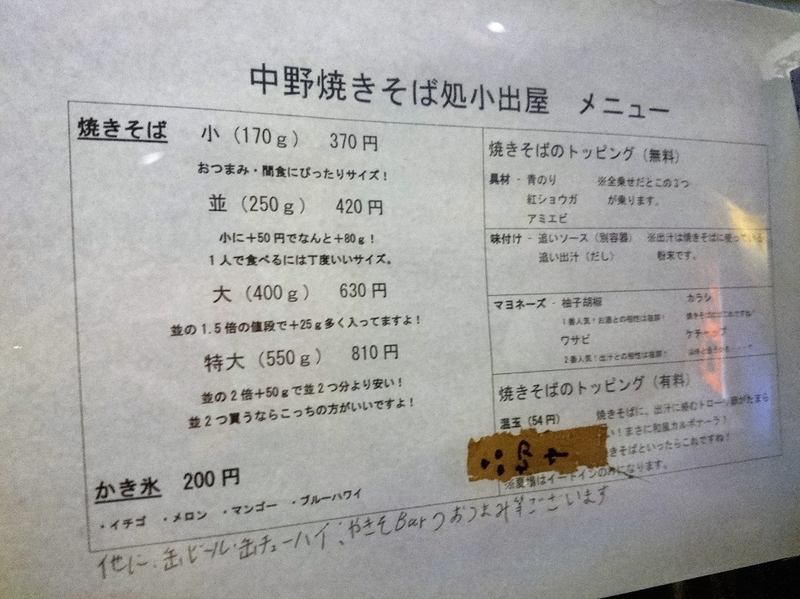 中野焼きそば処小出屋 メニュー
焼きそば 小（170g） 370円
おつまみ・間食にぴったりサイズ！
並（250g） 420円
小に+50円でなんと+80g！
1人で食べるには丁度いいサイズ。
大（400g） 630円
並の1.5倍の値段で+25g多く入ってますよ！
特大（550g） 810円
並の2倍+50gで並2つ分より安い！
並2つ買うならこっちの方がいいですよ！
かき氷 200円
・イチゴ ・メロン ・マンゴー ・ブルーハワイ
焼きそばのトッピング（無料）
具材 - 青のり ※全乗せだとこの3つ
紅ショウガ が乗ります。
アミエビ
味付け - 追いソース（別容器） ※出汁は焼きそばに使っている
追い出汁（だし） 粉末です。
マヨネーズ - 柚子胡椒 カラシ
1番人気！お酒との相性は抜群！
ワサビ ケチャップ
2番人気！出汁との相性は抜群！
焼きそばのトッピング（有料）
温玉（54円） 焼きそばに、出汁に絡むトローリ
い！まさに和風カルボナーラ！
きそばといったらこれですね！
品切中
※夏場はイートインのみになります。
他に、缶ビール・缶チューハイ、やきそBarのおつまみ等ございます